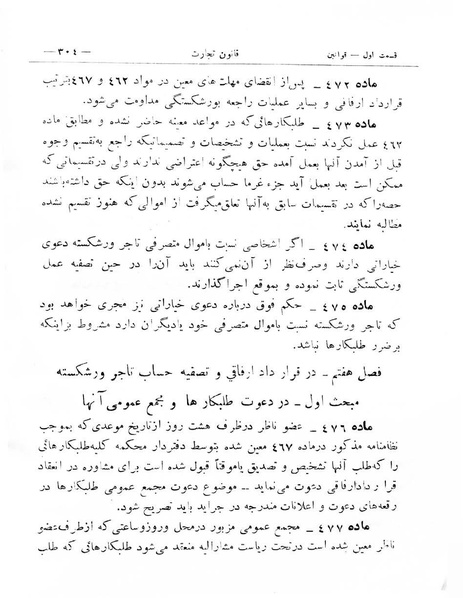 قسمت اول — قوانین
قانون تجارت
— ۳۰٤ —
ماده ٤۷۲ - پس از انقضای مهلت های معین در مواد ٤٦۲ و ٤٦۷ بترتیب
قرارداد ارفاقی و سایر عملیات راجعه بورشکستگی مداومت می‌شود.
ماده ٤۷۳ - طلبکارهائی که در مواعد معینه حاضر نشده و مطابق ماده
٤٦۲ عمل نکردند نسبت بعملیات و تشخیصات و تصمیماتیکه راجع بتقسیم وجوه
قبل از آمدن آنها بعمل آمده حق هیچگونه اعتراضی ندارند ولی در تقسیماتی که
ممکن است بعد بعمل آید جزء غرما حساب می‌شوند بدون اینکه حق داشته باشند
حصه را که در تقسیمات سابق به آنها تعلق میگرفت از اموالی که هنوز تقسیم نشده
مطالبه نمایند.
ماده ٤۷٤ - اگر اشخاصی نسبت باموال متصرفی تاجر ورشکسته دعوی
خیاراتی دارند و صرف‌نظر از آن نمی‌کنند باید آن را در حین تصفیه عمل
ورشکستگی ثابت نموده و بموقع اجرا گذارند.
ماده ٤۷۵ - حکم فوق درباره دعوی خیاراتی نیز مجری خواهد بود
که تاجر ورشکسته نسبت باموال متصرفی خود یا دیگران دارد مشروط بر اینکه
بر ضرر طلبکارها نباشد.
فصل هفتم - در قرار داد ارفاقی و تصفیه حساب تاجر ورشکسته
مبحث اول - در دعوت طلبکار ها و مجمع عمومی آنها
ماده ٤۷٦ - عضو ناظر در ظرف هشت روز از تاریخ موعدی که بموجب
نظامنامه مذکور در ماده ٤٦۷ معین شده بتوسط دفتردار محکمه کلیه طلبکارهائی
را که طلب آنها تشخیص و تصدیق یا موقتاً قبول شده است برای مشاوره در انعقاد
قرارداد ارفاقی دعوت می‌نماید — موضوع دعوت مجمع عمومی طلبکارها در
رقعه‌های دعوت و اعلانات مندرجه در جراید باید تصریح شود.
ماده ٤۷۷ - مجمع عمومی مزبور در محل و روز و ساعتی که از طرف عضو
ناظر معین شده است در تحت ریاست مشارالیه منعقد می‌شود طلبکارهائی که طلب